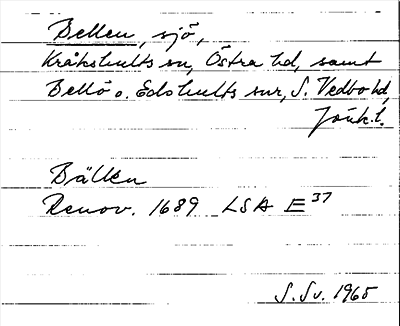 Bellen, sjö,
Kråkshults sn, Östra hd, samt
Bellö o. Edshults snr, S. Vedbo hd,
Jönk.l.
Bällen
Renov. 1689 LSA E 37
S.Sv. 1965